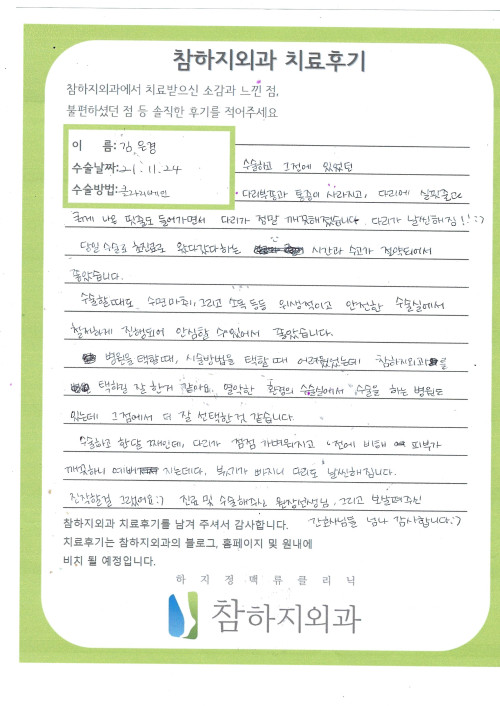 참하지외과 치료후기
참하지외과에서 치료받으신 소감과 느낀 점,
불편하셨던 점 등 솔직한 후기를 적어주세요
이 름: 김은경
수술날짜: 21. 11. 24
수술방법: 클라리베인
수술하고 그전에 있었던
다리부종과 통증이 사라지고, 다리에 실핏줄과
크게 나온 핏줄도 들어가면서 다리가 정말 깨끗해졌습니다. 다리가 날씬해짐!! :)
당일 수술로 왔다갔다하는 시간과 수고가 절약되어서
좋았습니다.
수술할때도 수면마취, 그리고 소독 등등 위생적이고 안전한 수술실에서
철저하게 진행되어 안심할 수 있어서 좋았습니다.
병원을 택할때, 시술방법을 택할때 어려웠었는데 참하지외과를
택하길 잘 한거 같아요. 열악한 환경의 수술실에서 수술을 하는 병원도
있는데 그점에서 더 잘 선택한것 같습니다.
수술하고 한달 째인데, 다리가 점점 가벼워지고 전에 비해 피부가
깨끗하니 예뻐지는데다, 붓기가 빠지니 다리도 날씬해집니다.
진작할걸 그랬어요 :) 진료 및 수술해주신 원장선생님, 그리고 보살펴주신
간호사님들 넘나 감사합니다. :)
참하지외과 치료후기를 남겨 주셔서 감사합니다.
치료후기는 참하지외과의 블로그, 홈페이지 및 원내에
비치 될 예정입니다.
하지정맥류클리닉
참하지외과